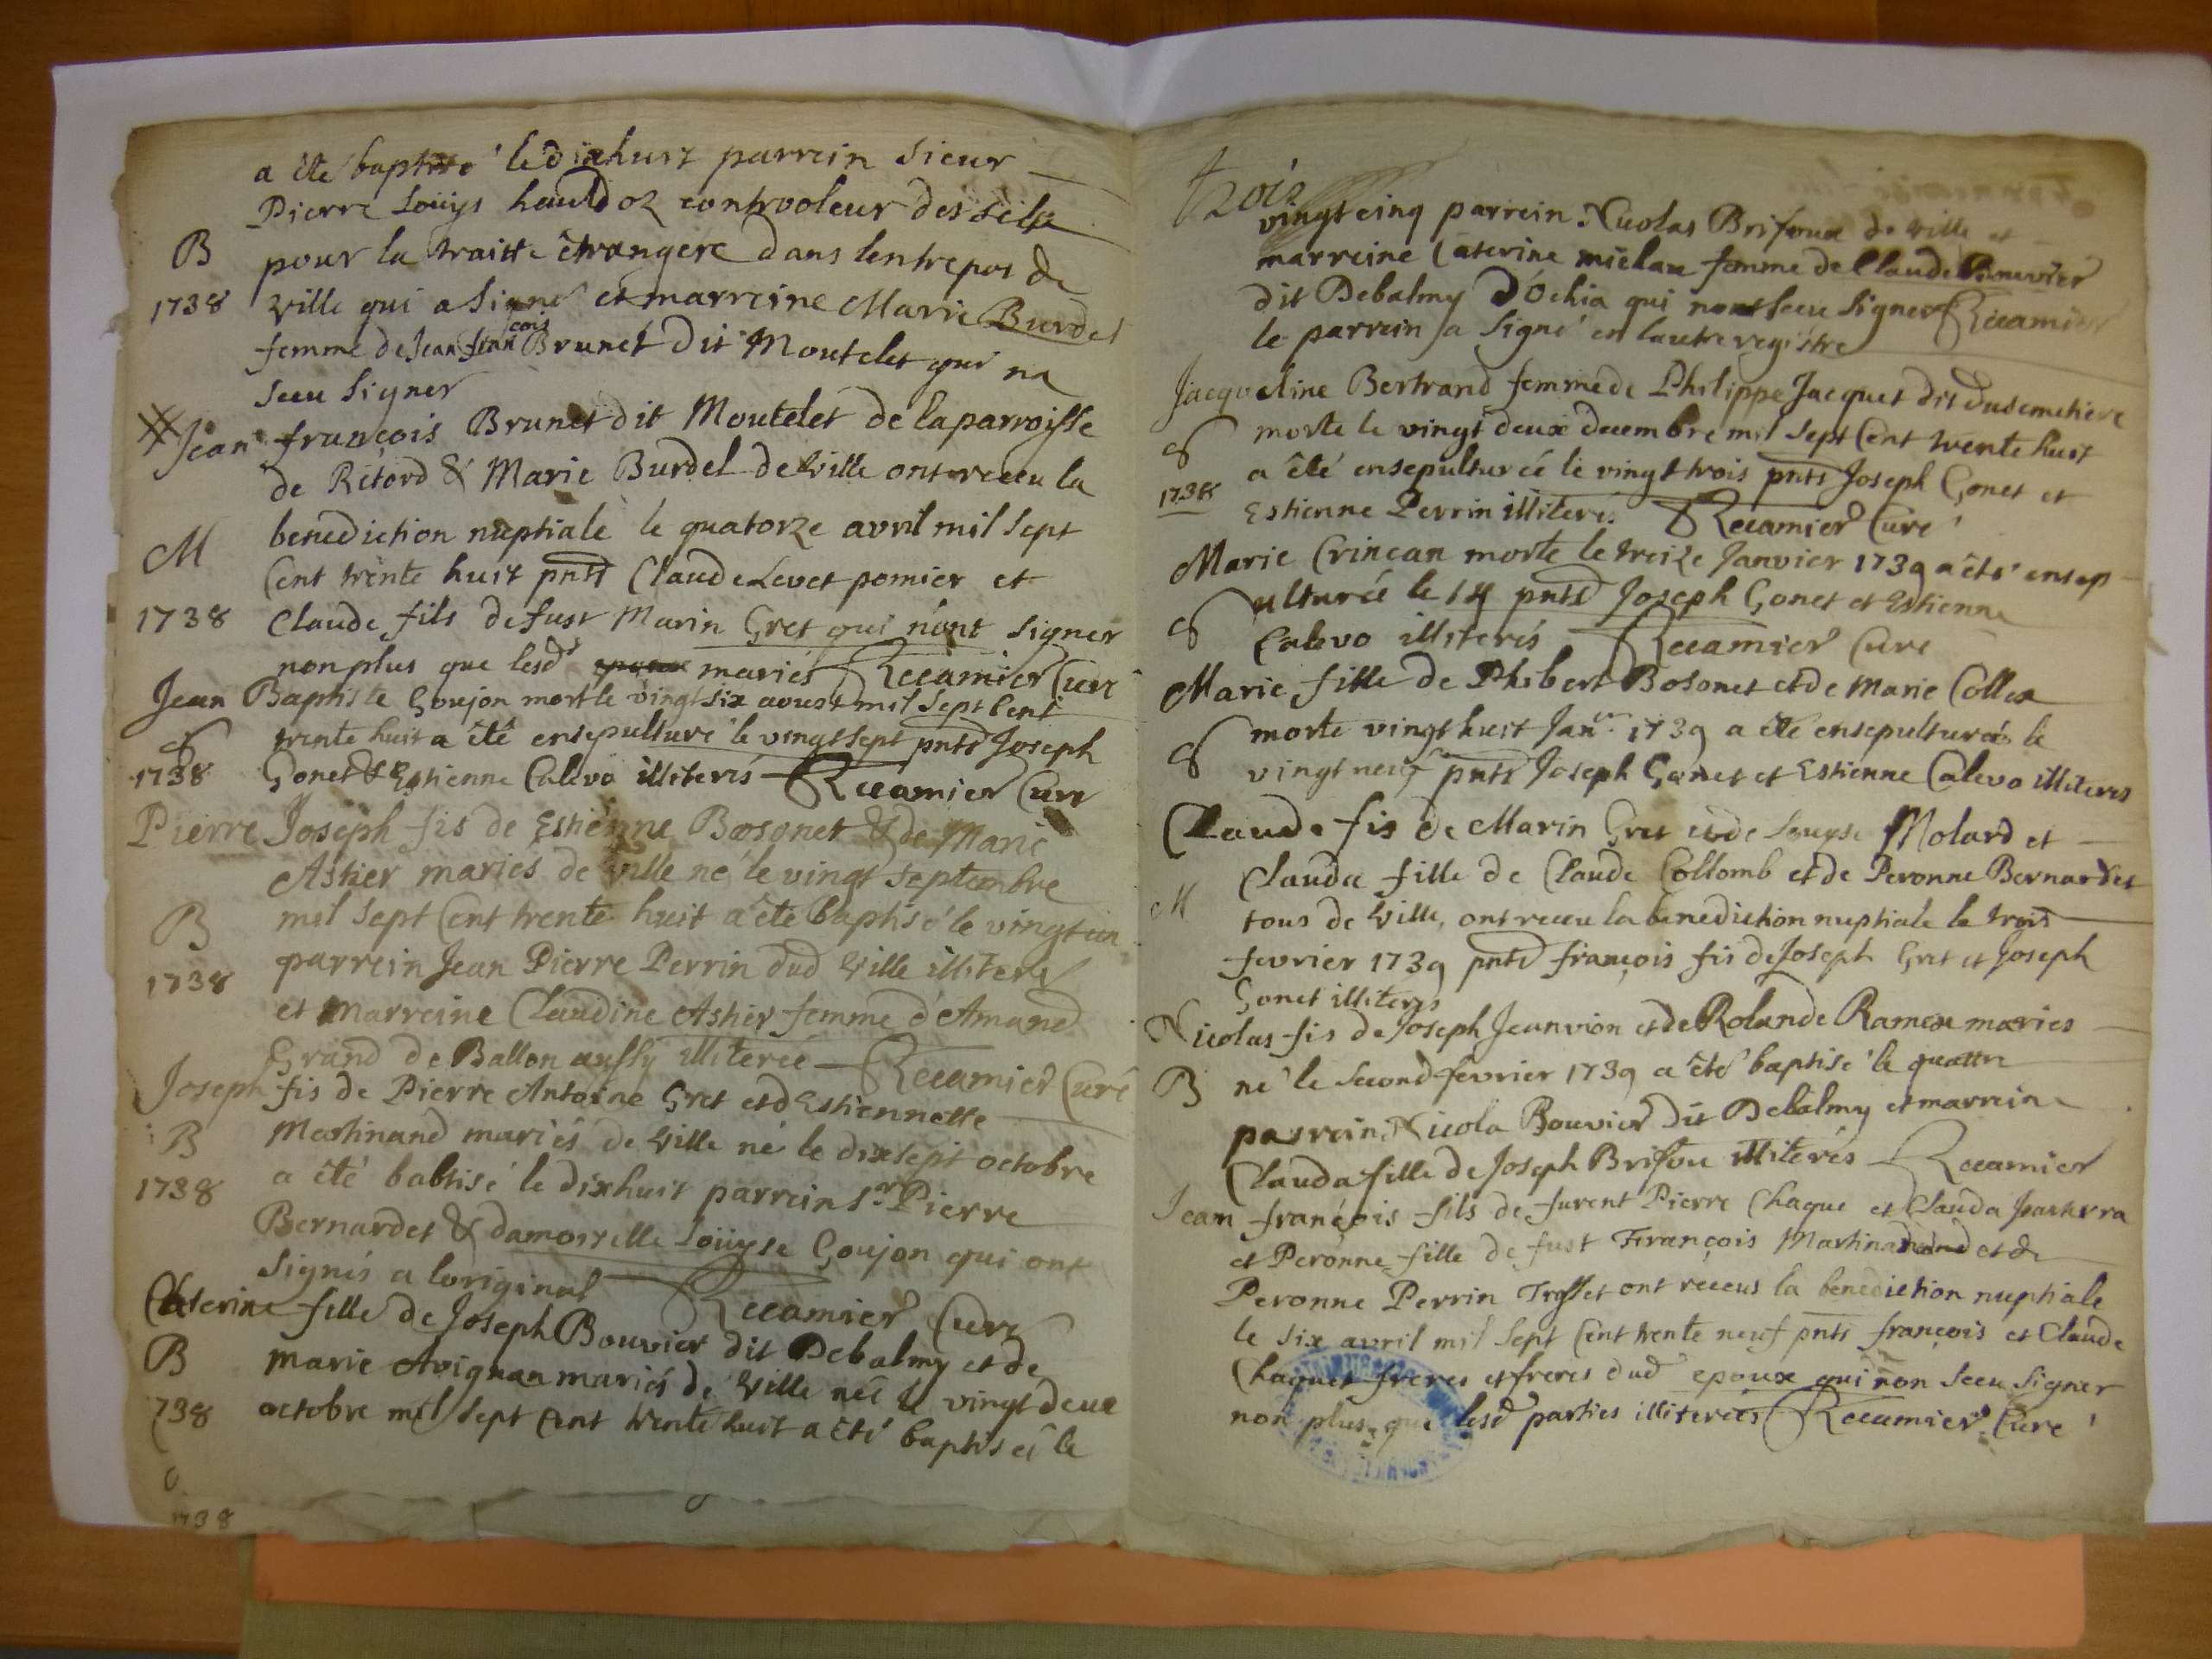 a été baptisé le dixhuit parrein Sieur
Pierre Loüys controoleur des sels
B pour la traitte êtrangere dans lentrepos de
1738 ville qui a signé et marreine Marie Burdel
femme de Jean françois Brunet dit Moutelet qui na
sceu signer
Jean françois Brunet dit Moutelet de la parroisse
de Retord & Marie Burdel de ville ont receu la
M benediction nuptiale le quatorze avril mil sept
Cent trente huit pnts Claude Levet pomier et
1738 Claude fils de fust Marin Gret qui nont signer
non plus que lesds mariés Recamier Curé
Jean Baptiste Goujon mort le vingt six aoust mil sept Cent
S trente huit a êté ensepulturé le vingt sept pnts Joseph
1738 Gonet & Estienne Calevo illiterés Recamier Curé
Pierre Joseph fis de Estienne Bosonet & de Marie
Astier mariés de ville né le vingt septembre
B mil sept Cent trente huit a été baptisé le vingt un
1738 parrein Jean Pierre Perrin dud ville illiteré
et marreine Claudine Astier femme d'Amand
Grand de Ballon aussy illiterée Recamier Curé
Joseph fis de Pierre Antoine Gret et d Estiennette
B Mastinand mariés de ville né le dixsept octobre
1738 a êté babtisé le dixhuit parrein Sr Pierre
Bernardet & damoiselle Loüyse Goujon qui ont
signés a loriginal Recamier Curé
Caterine fille de Joseph Bouvier dit Debalmy et de
B marie Avignan mariés de ville née le vingt deux
738 octobre mil sept Cent trente huit a été baptisée le
1738
trois
vingtcinq parrein Nicolas Brifoux de ville et
marreine Caterine mielan femme de Claude Bouvier
dit Debalmy d'Ochia qui nont sceu signer Recamier
le parrein a signé en lautre registre
Jacqueline Bertrand femme de Philippe Jacquet dit Dusemetiere
S morte le vingt deux decembre mil sept Cent trente huit
1738 a êté ensepulturée le vingt trois pnts Joseph Gonet et
Estienne Perrin illiterés Recamier Curé
Marie Crincan morte le treize Janvier 1739 a êté ensep
S ulturée le 14 pnts Joseph Gonet et Estienne
Calevo illiterés Recamier Curé
Marie fille de Phibert Bosonet et de Marie Collex
S morte vingt huit Janer 1739 a êté ensepulturée le
vingt neuf pnts Joseph Gonet et Estienne Calevo illiterés
Claude fis de Marin Gret et de Louyse Molard et
Clauda fille de Claude Collomb et de Peronne Bernardet
M tous de ville, ont receu la benediction nuptiale le trois
fevrier 1739 pnts françois fis de Joseph Gret et Joseph
Gonet illiterés
Nicolas fis de Joseph Jeanvion et de Rolande Ramex mariés
B né le second fevrier 1739 a êté baptisé le quattre
parrein Nicola Bouvier dit Debalmy et marreine
Clauda fille de Joseph Brifou illiterés Recamier
Jean françois fils de furent Pierre Chaque et Clauda
et Peronne fille de fust François et de
Peronne Perrin ont receus la benediction nuptiale
le six avril mil sept Cent trente neuf pnts françois et Claude
Chaque freres et freres dud epoux qui non sceu signer
non plus que lesd parties illiterées Recamier Curé